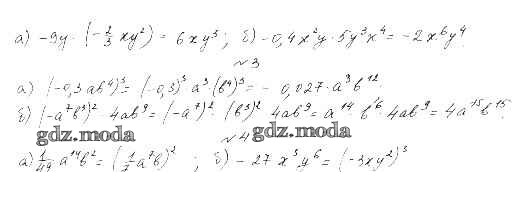 а) -9y · (-2/3 xy²) = 6xy³; б) -0,4x²y · 5y³x⁴ = -2x⁶y⁴.
№3
а) (-0,3ab⁴)³ = (-0,3)³ a³ · (b⁴)³ = -0,027 · a³b¹²
б) (-a⁷b³)² · 4ab⁹ = (-a⁷)² · (b³)² · 4ab⁹ = a¹⁴ · b⁶ · 4ab⁹ = 4a¹⁵b¹⁵.
gdz.moda №4 gdz.moda
а) 1/49 a¹⁴b² = (1/7 a⁷b)²; б) -27x³y⁶ = (-3xy²)³